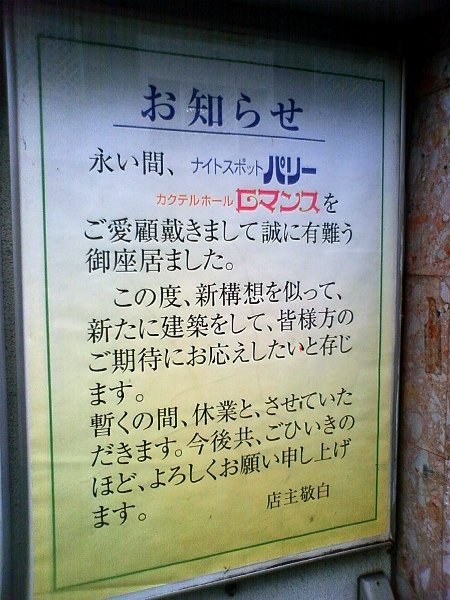 お知らせ
永い間、ナイトスポットパリー
カクテルホールロマンスを
ご愛顧戴きまして誠に有難う
御座居ました。
この度、新構想を似って、
新たに建築をして、皆様方の
ご期待にお応えしたいと存じ
ます。
暫くの間、休業と、させていた
だきます。今後共、ごひいきの
ほど、よろしくお願い申し上げ
ます。
店主敬白